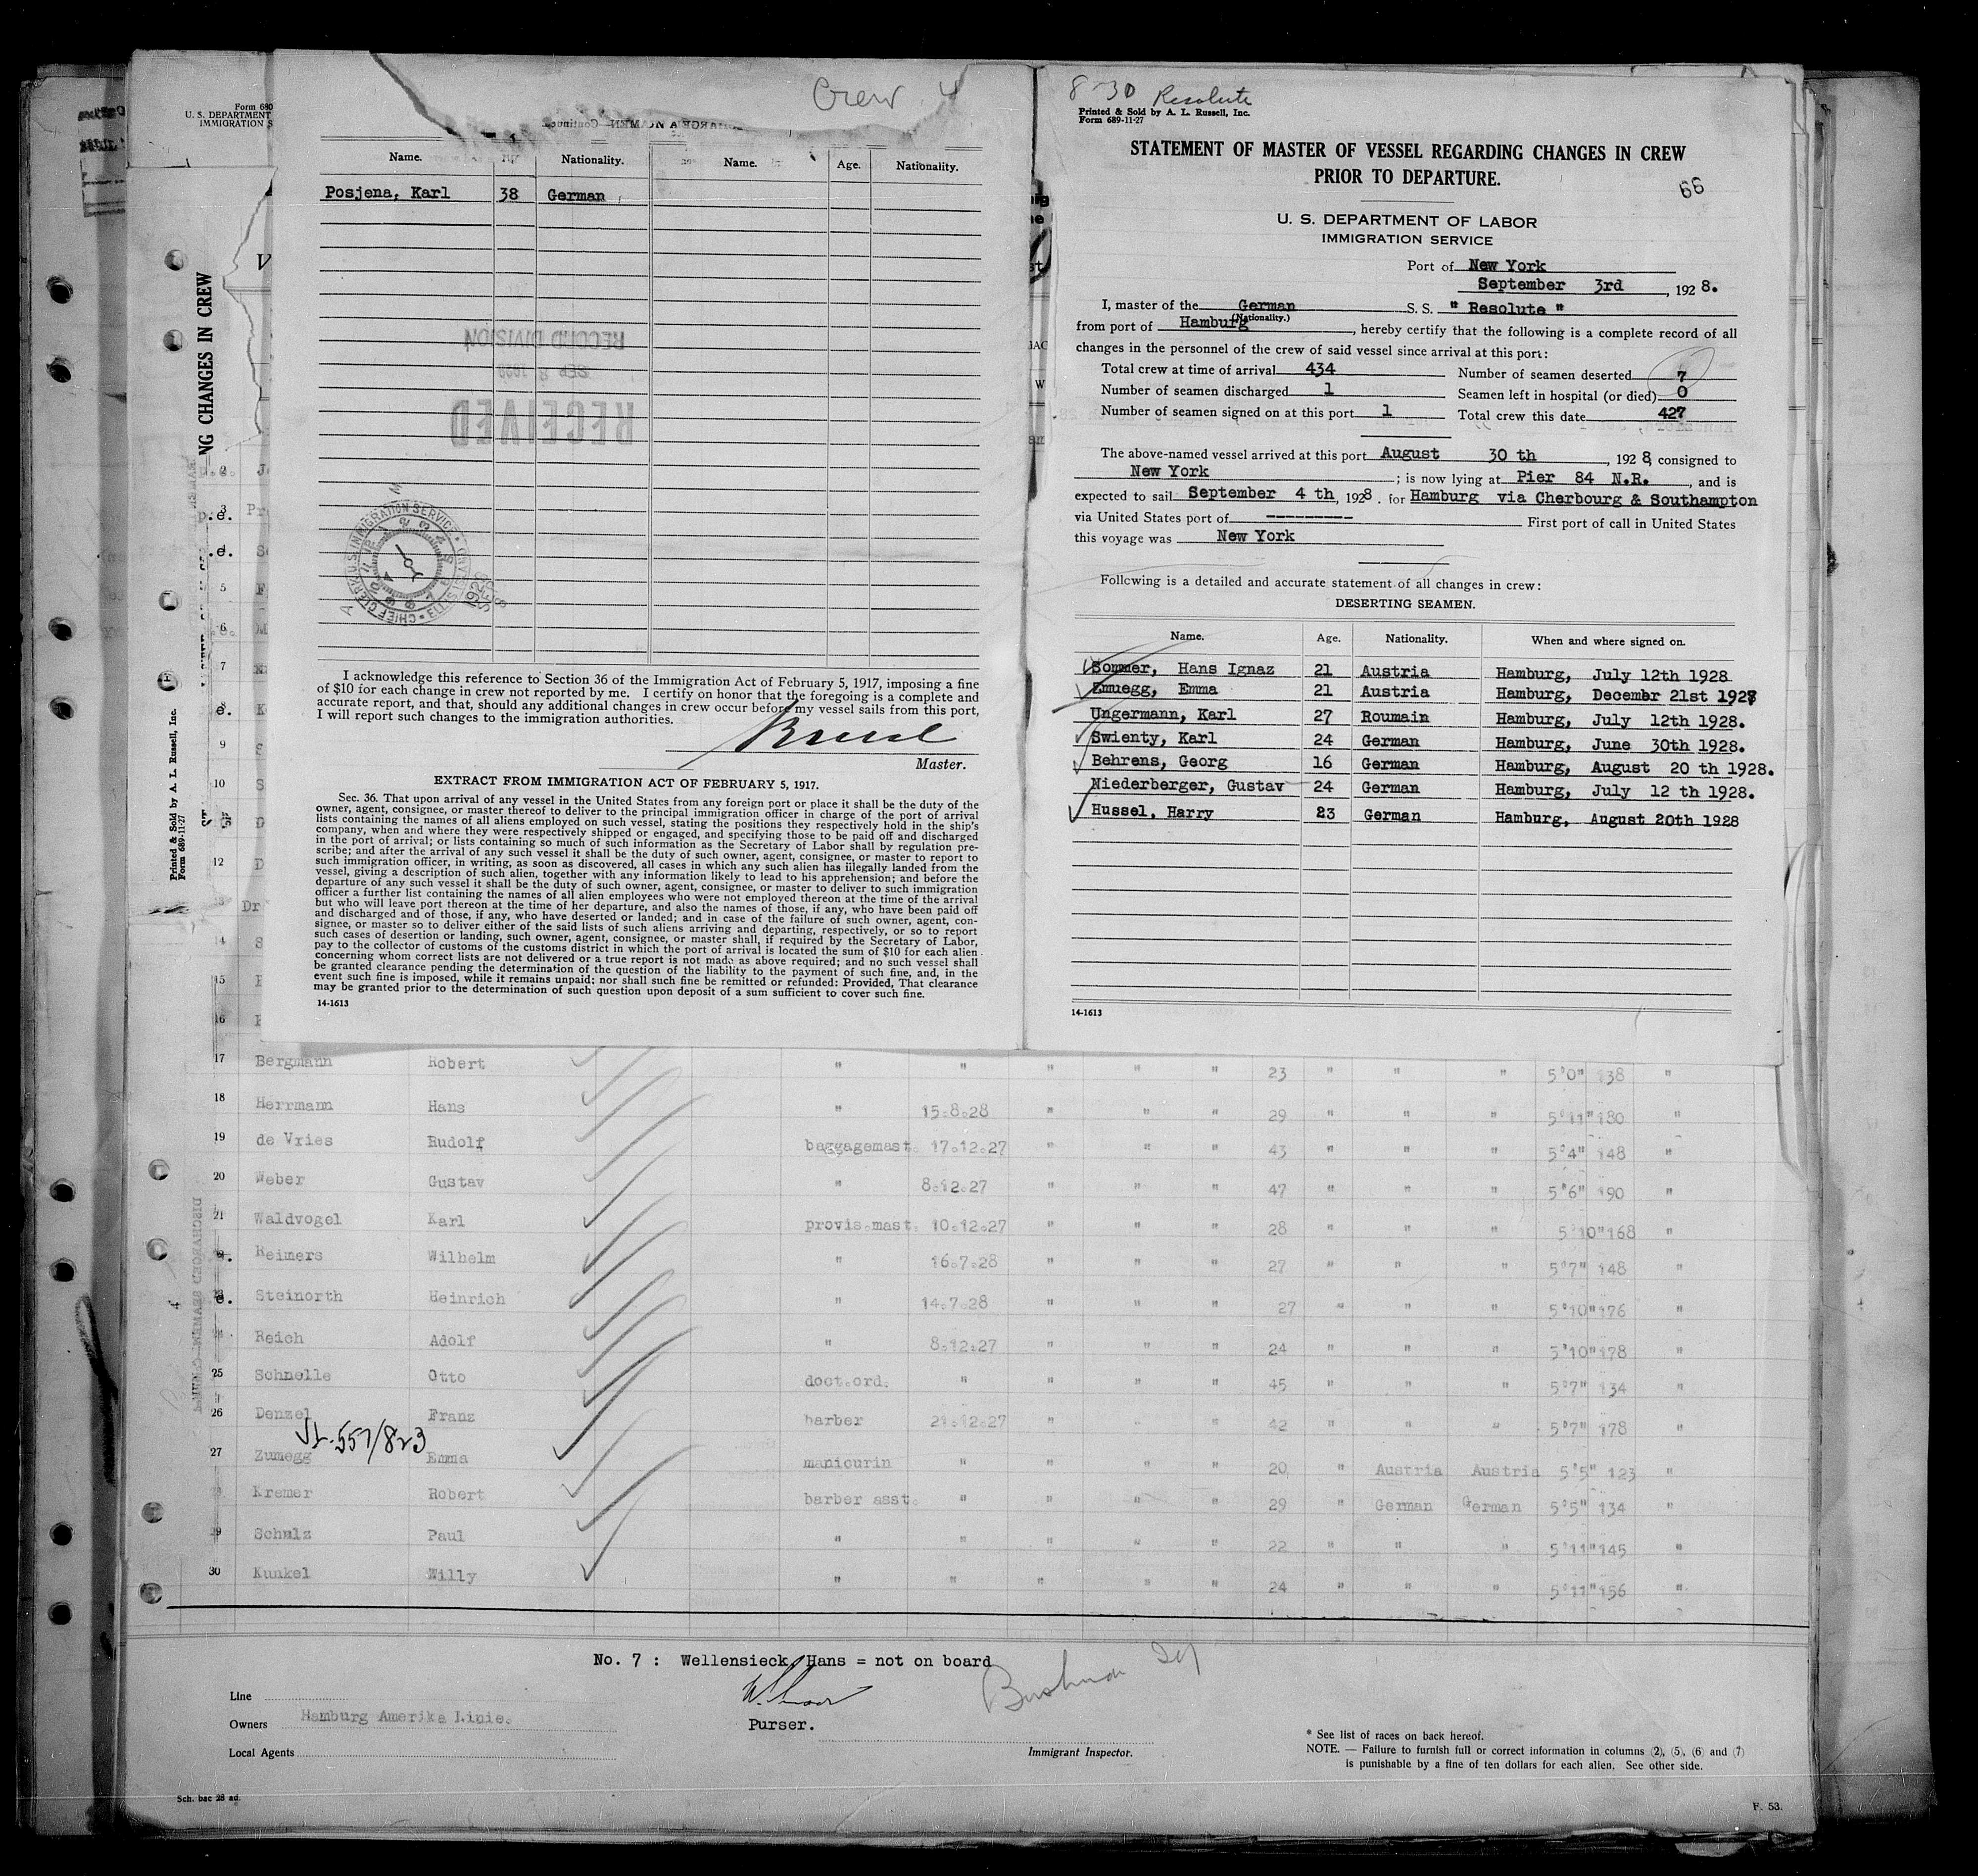 Form 680
U. S. DEPARTMENT
IMMIGRATION S
NG CHANGES IN CREW
Printed & Sold by A. L. Russell, Inc.
Form 689-11-27
Crew
Name. Nationality. Name. Age. Nationality.
Posjena, Karl 38 German
RECORD DIVISION
RECEIVED
I acknowledge this reference to Section 36 of the Immigration Act of February 5, 1917, imposing a fine
of $10 for each change in crew not reported by me. I certify on honor that the foregoing is a complete and
accurate report, and that, should any additional changes in crew occur before my vessel sails from this port,
I will report such changes to the immigration authorities.
Master.
EXTRACT FROM IMMIGRATION ACT OF FEBRUARY 5, 1917.
Sec. 36. That upon arrival of any vessel in the United States from any foreign port or place it shall be the duty of the
owner, agent, consignee, or master thereof to deliver to the principal immigration officer in charge of the port of arrival
lists containing the names of all aliens employed on such vessel, stating the positions they respectively hold in the ship's
company, when and where they were respectively shipped or engaged, and specifying those to be paid off and discharged
in the port of arrival; or lists containing so much of such information as the Secretary of Labor shall by regulation pre-
scribe; and after the arrival of any such vessel it shall be the duty of such owner, agent, consignee, or master to report to
such immigration officer, in writing, as soon as discovered, all cases in which any such alien has illegally landed from the
vessel, giving a description of such alien, together with any information likely to lead to his apprehension; and before the
departure of any such vessel it shall be the duty of such owner, agent, consignee, or master to deliver to such immigration
officer a further list containing the names of all alien employees who were not employed thereon at the time of the arrival
but who will leave port thereon at the time of her departure, and also the names of those, if any, who have been paid off
and discharged and of those, if any, who have deserted or landed; and in case of the failure of such owner, agent, con-
signee, or master so to deliver either of the said lists of such aliens arriving and departing, respectively, or so to report
such cases of desertion or landing, such owner, agent, consignee, or master shall, if required by the Secretary of Labor,
pay to the collector of customs of the customs district in which the port of arrival is located the sum of $10 for each alien
concerning whom correct lists are not delivered or a true report is not made as above required; and no such vessel shall
be granted clearance pending the determination of the question of the liability to the payment of such fine, and, in the
event such fine is imposed, while it remains unpaid; nor shall such fine be remitted or refunded: Provided, That clearance
may be granted prior to the determination of such question upon deposit of a sum sufficient to cover such fine.
14-1613
8-30 Resolute
Printed & Sold by A. L. Russell, Inc.
Form 689-11-27
STATEMENT OF MASTER OF VESSEL REGARDING CHANGES IN CREW
PRIOR TO DEPARTURE.
66
U. S. DEPARTMENT OF LABOR
IMMIGRATION SERVICE
Port of New York
September 3rd, 1928.
I, master of the German S. S. " Resolute "
(Nationality.)
from port of Hamburg, hereby certify that the following is a complete record of all
changes in the personnel of the crew of said vessel since arrival at this port:
Total crew at time of arrival 434 Number of seamen deserted 7
Number of seamen discharged 1 Seamen left in hospital (or died) 0
Number of seamen signed on at this port 1 Total crew this date 427
The above-named vessel arrived at this port August 30 th, 1928, consigned to
New York; is now lying at Pier 84 N.R., and is
expected to sail September 4 th, 1928. for Hamburg via Cherbourg & Southampton
via United States port of --------- First port of call in United States
this voyage was New York
Following is a detailed and accurate statement of all changes in crew:
DESERTING SEAMEN.
Name. Age. Nationality. When and where signed on.
Sommer, Hans Ignaz 21 Austria Hamburg, July 12th 1928
Zmuegg, Emma 21 Austria Hamburg, Decembr 21st 1927
Ungermann, Karl 27 Roumain Hamburg, July 12th 1928.
Swienty, Karl 24 German Hamburg, June 30th 1928.
Behrens, Georg 16 German Hamburg, August 20 th 1928.
Niederberger, Gustav 24 German Hamburg, July 12 th 1928.
Hussel, Harry 23 German Hamburg, August 20th 1928
14-1613
17 Bergmann Robert " " " " " 23 " " " 5'0" 138 "
18 Herrmann Hans " 15.8.28 " " " 29 " " " 5'11" 180 "
19 de Vries Rudolf baggagemast. 17.12.27 " " " 43 " " " 5'4" 148 "
20 Weber Gustav " 8.12.27 " " " 47 " " " 5'6" 190 "
21 Waldvogel Karl provis.mast. 10.12.27 " " " 28 " " " 5'10" 168 "
Reimers Wilhelm " 16.7.28 " " " 27 " " " 5'7" 148 "
Steinorth Heinrich " 14.7.28 " " " 27 " " " 5'10" 176 "
Reich Adolf " 8.12.27 " " " 24 " " " 5'10" 178 "
25 Schnelle Otto doct.ord. " " " " 45 " " " 5'7" 134 "
26 Denzel Franz barber 21.12.27 " " " 42 " " " 5'7" 178 "
27 Zumegg Emma manicurin " " " " 20 " Austria Austria 5'5" 123 "
Kremer Robert barber asst. " " " " 29 " German German 5'5" 134 "
29 Schulz Paul " " " " " 22 " " " 5'11" 145 "
30 Kunkel Willy " " " " " 24 " " " 5'11" 156 "
No. 7 : Wellensieck, Hans = not on board
Line
Owners Hamburg Amerika Linie.
Local Agents
Purser.
Immigrant Inspector.
* See list of races on back hereof.
NOTE. — Failure to furnish full or correct information in columns (2), (5), (6) and (7)
is punishable by a fine of ten dollars for each alien. See other side.
Sch. bac 28 ad.
F. 53.